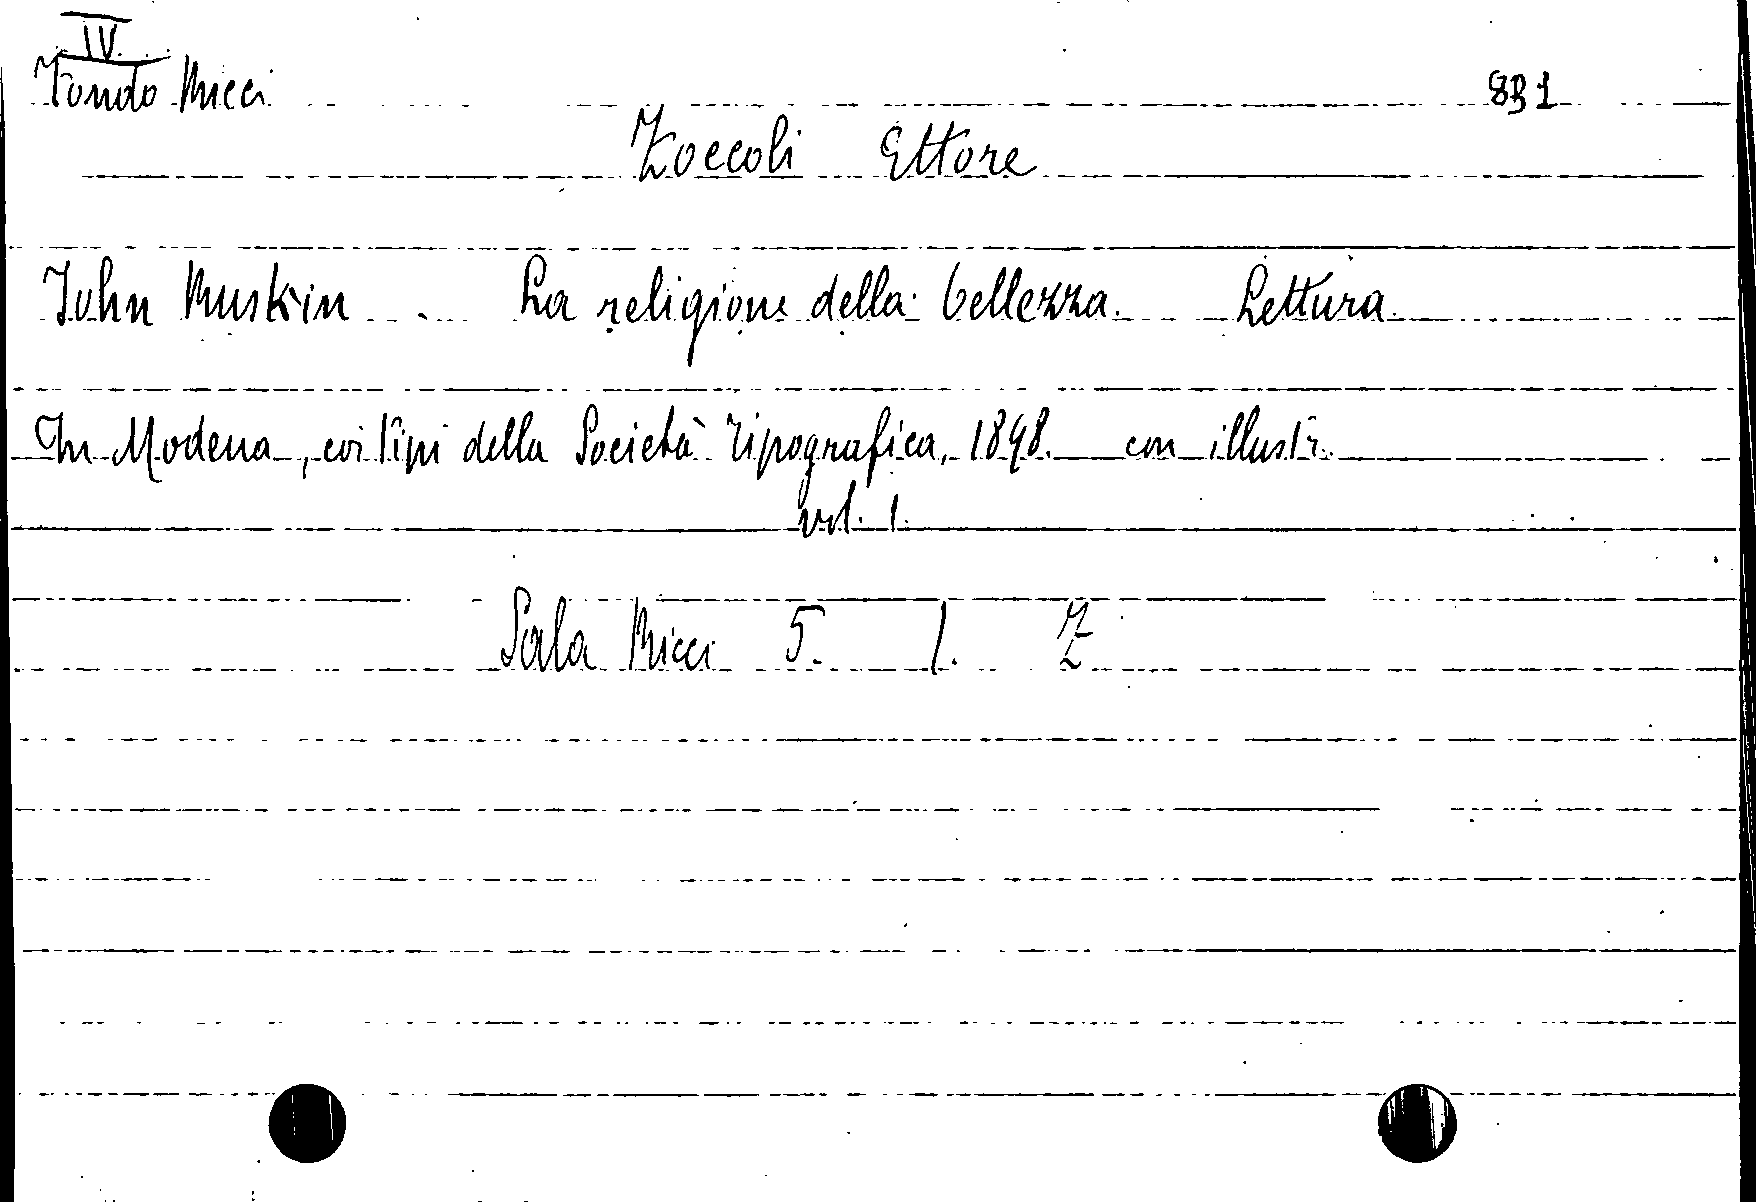 IV
Fondo Ricci 831
Zoccoli Ettore
John Ruskin. La religione della bellezza. Lettura
In Modena, coi tipi della Società Tipografica, 1898. con illustr.
vol. 1.
Sala Ricci 5. 1. Z